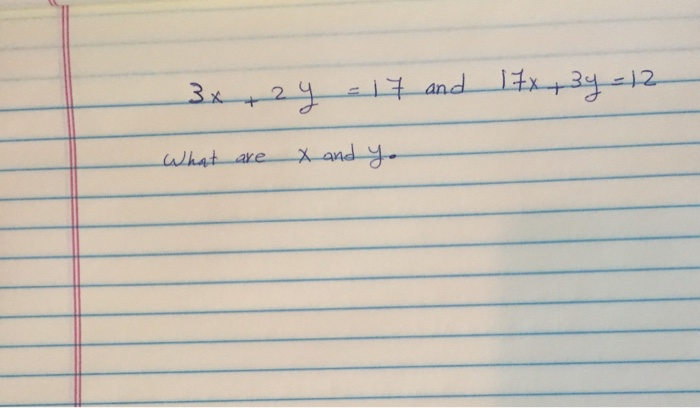 3x + 2y = 17 and 17x + 3y = 12
What are x and y.